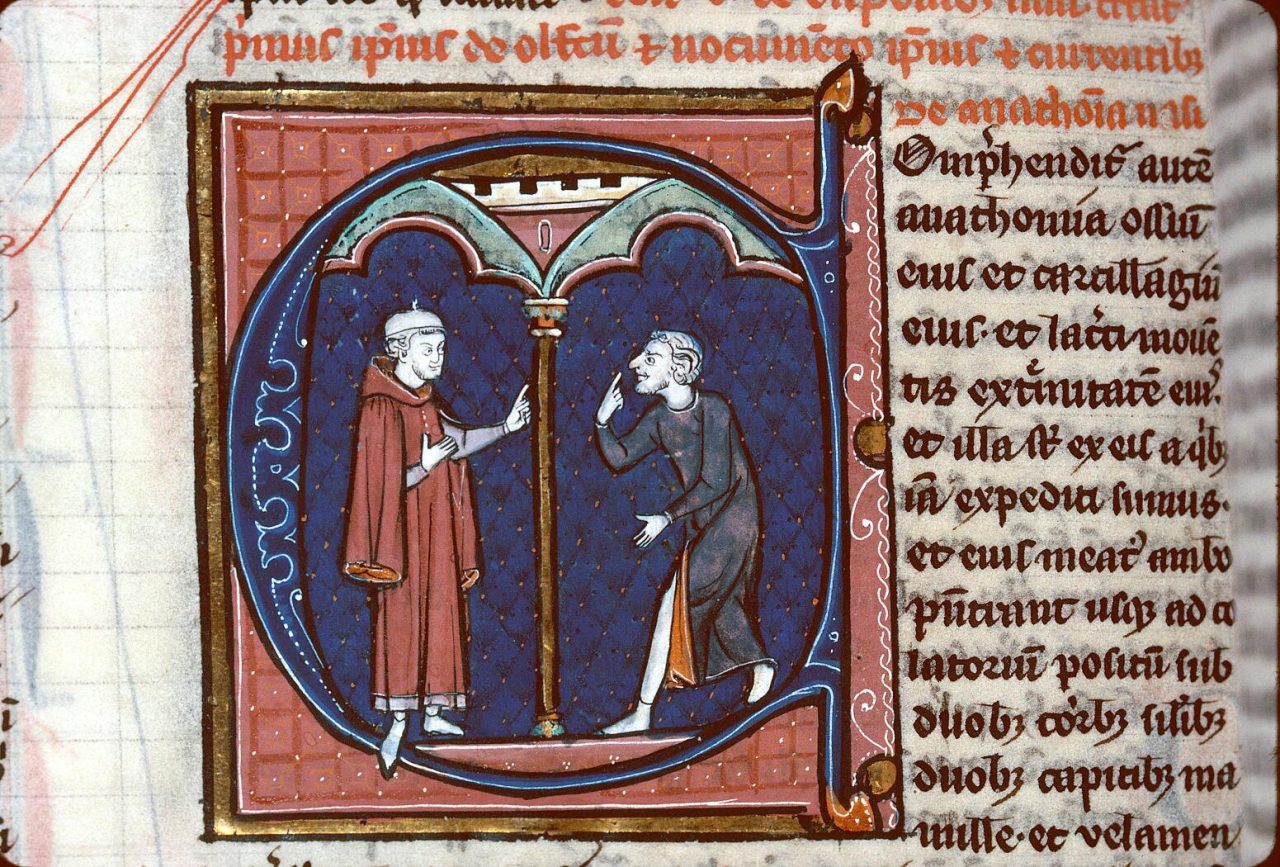 sermo ip̄ius de olfcū ⁊ nocumēto ip̄ius ⁊ curentibꝫ
De anathoīa nasi
COmp̄hendit̄ autē
anathomia ossiū
eius et cartillagīū
eius. et lac̄ti mouē
tis ext̄mitatē eiuˢ.
et illa st̄ ex eis a qͥbꝫ
iā expediti sumus.
et eius meatˀ ambo
pn̄trant usqꝫ ad co
latoriū positū sub
duobꝫ cōrbꝫ sil̄ibꝫ
duobꝫ capitibꝫ ma
mille. et velamen